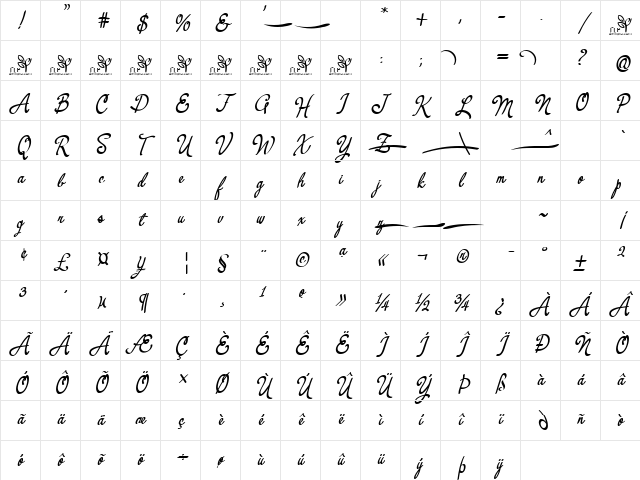 ! " # $ % & ' * + , - . /
: ; = ? @
A B C D E F G H I J K L M N O P
Q R S T U V W X Y Z \ ^ `
a b c d e f g h i j k l m n o p
q r s t u v w x y z ~ ¡
¢ £ ¤ ¥ ¦ § ¨ © ª « ¬ ® ¯ ° ± ²
³ ´ µ ¶ · ¸ ¹ º » ¼ ½ ¾ ¿ À Á Â
Ã Ä Å Æ Ç È É Ê Ë Ì Í Î Ï Ð Ñ Ò
Ó Ô Õ Ö × Ø Ù Ú Û Ü Ý Þ ß à á â
ã ä å æ ç è é ê ë ì í î ï ð ñ ò
ó ô õ ö ÷ ø ù ú û ü ý þ ÿ